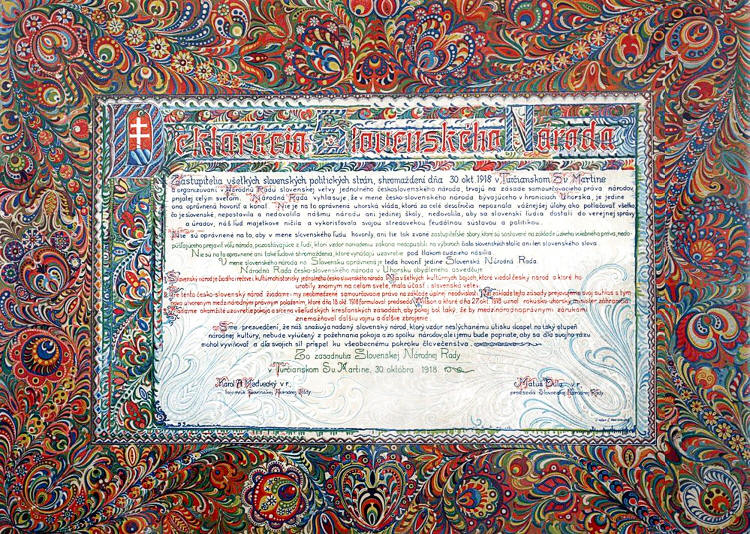 Deklarácia Slovenského Národa
Zástupitelia všetkých slovenských politických strán, shromaždení dňa 30 okt. 1918 v Turčianskom Sv. Martine
a organizovaní v Národnú Radu slovenskej vetvy jednotného československého národa, trvajú na zásade samourčovacieho práva národov,
prijatej celým svetom. Národná Rada vyhlasuje, že v mene česko-slovenského národa bývajúceho v hraniciach Uhorska, je jedine
ona oprávnená hovoriť a konať. Nie je na to oprávnená uhorská vláda, ktorá za celé desaťročia nepoznala vážnejšej úlohy ako potláčať všetko
čo je slovenské, nepostavila a nedovolila nášmu národu ani jednej školy, nedovolila, aby sa slovenskí ľudia dostali do verejnej správy
a úradov, náš ľud majetkove ničila a vykorisťovala svojou stredovekou feudálnou sústavou a politikou.
Nie sú oprávnené na to, aby v mene slovenského ľudu hovorily, ani tie tak zvané zastupiteľské sbory, ktoré sú sostavené na základe úzkeho volebného práva, nedo-
púšťajúceho prejaviť vôľu národa, pozostávajúce z ľudí, ktorí vzdor nariadeniu zákona nezapustili na výboroch čisto slovenských stolíc ani len slovenského slova.
Nie sú na to oprávnené ani také ľudové shromaždenia, ktoré vynášajú uzavretie pod tlakom cudzieho násilia.
V mene slovenského národa na Slovensku oprávnená je teda hovoriť jedine Slovenská Národná Rada.
Národná Rada česko-slovenského národa v Uhorsku obydleného osvedčuje
Slovenský národ je čiastka i rečove i kultúrno-historicky jednotného česko-slovenského národa. Na všetkých kultúrnych bojoch, ktoré viedol český národ a ktoré ho
urobily známym na celom svete, mala účasť i slovenská vetev.
Pre tento česko-slovenský národ žiadame i my neobmedzené samourčovacie právo na základe úplnej neodvislosti. Na základe tejto zásady prejavujeme svoj súhlas s tým
novoutvoreným medzinárodným právnym položením, ktoré dňa 18 okt. 1918 formuloval predseda Wilson a ktoré dňa 27 okt. 1918 uznal rakúsko-uhorský minister zahraničia.
Žiadame okamžité uzavretie pokoja a sice na všeľudských kresťanských zásadách, aby pokoj bol taký, že by medzinárodnoprávnymi zárukami
znemožňoval ďalšiu vojnu a ďalšie zbrojenie.
Sme presvedčení, že náš snaživý a nadaný slovenský národ, ktorý vzdor neslýchanému útisku dospel na taký stupeň
národnej kultúry, nebude vylúčený z požehnania pokoja a zo spolku národov, ale i jemu bude popriate, aby sa dľa svojho rázu
mohol vyvinovať a dľa svojich síl prispeť ku všeobecnému pokroku človečenstva.
Zo zasadnutia Slovenskej Národnej Rady
v Turčianskom Sv. Martine, 30 októbra 1918.
Karol A. Medvecký v.r.,
tajomník Slovenskej Národnej Rady
Matúš Dula v.r.,
predseda Slovenskej Národnej Rady